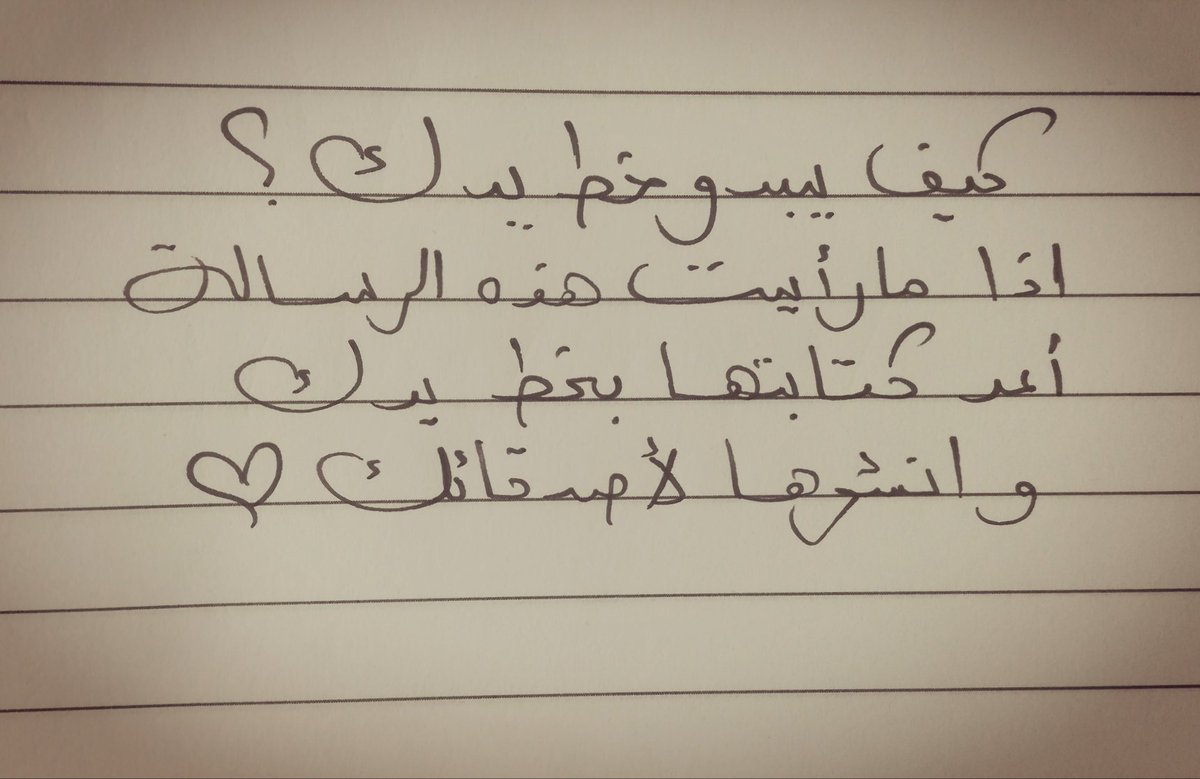 كيف يبدو خط يدك ؟
اذا ما رأيت هذه الرسالة
أعد كتابتها بخط يدك
و انشرها لأصدقائك ♡